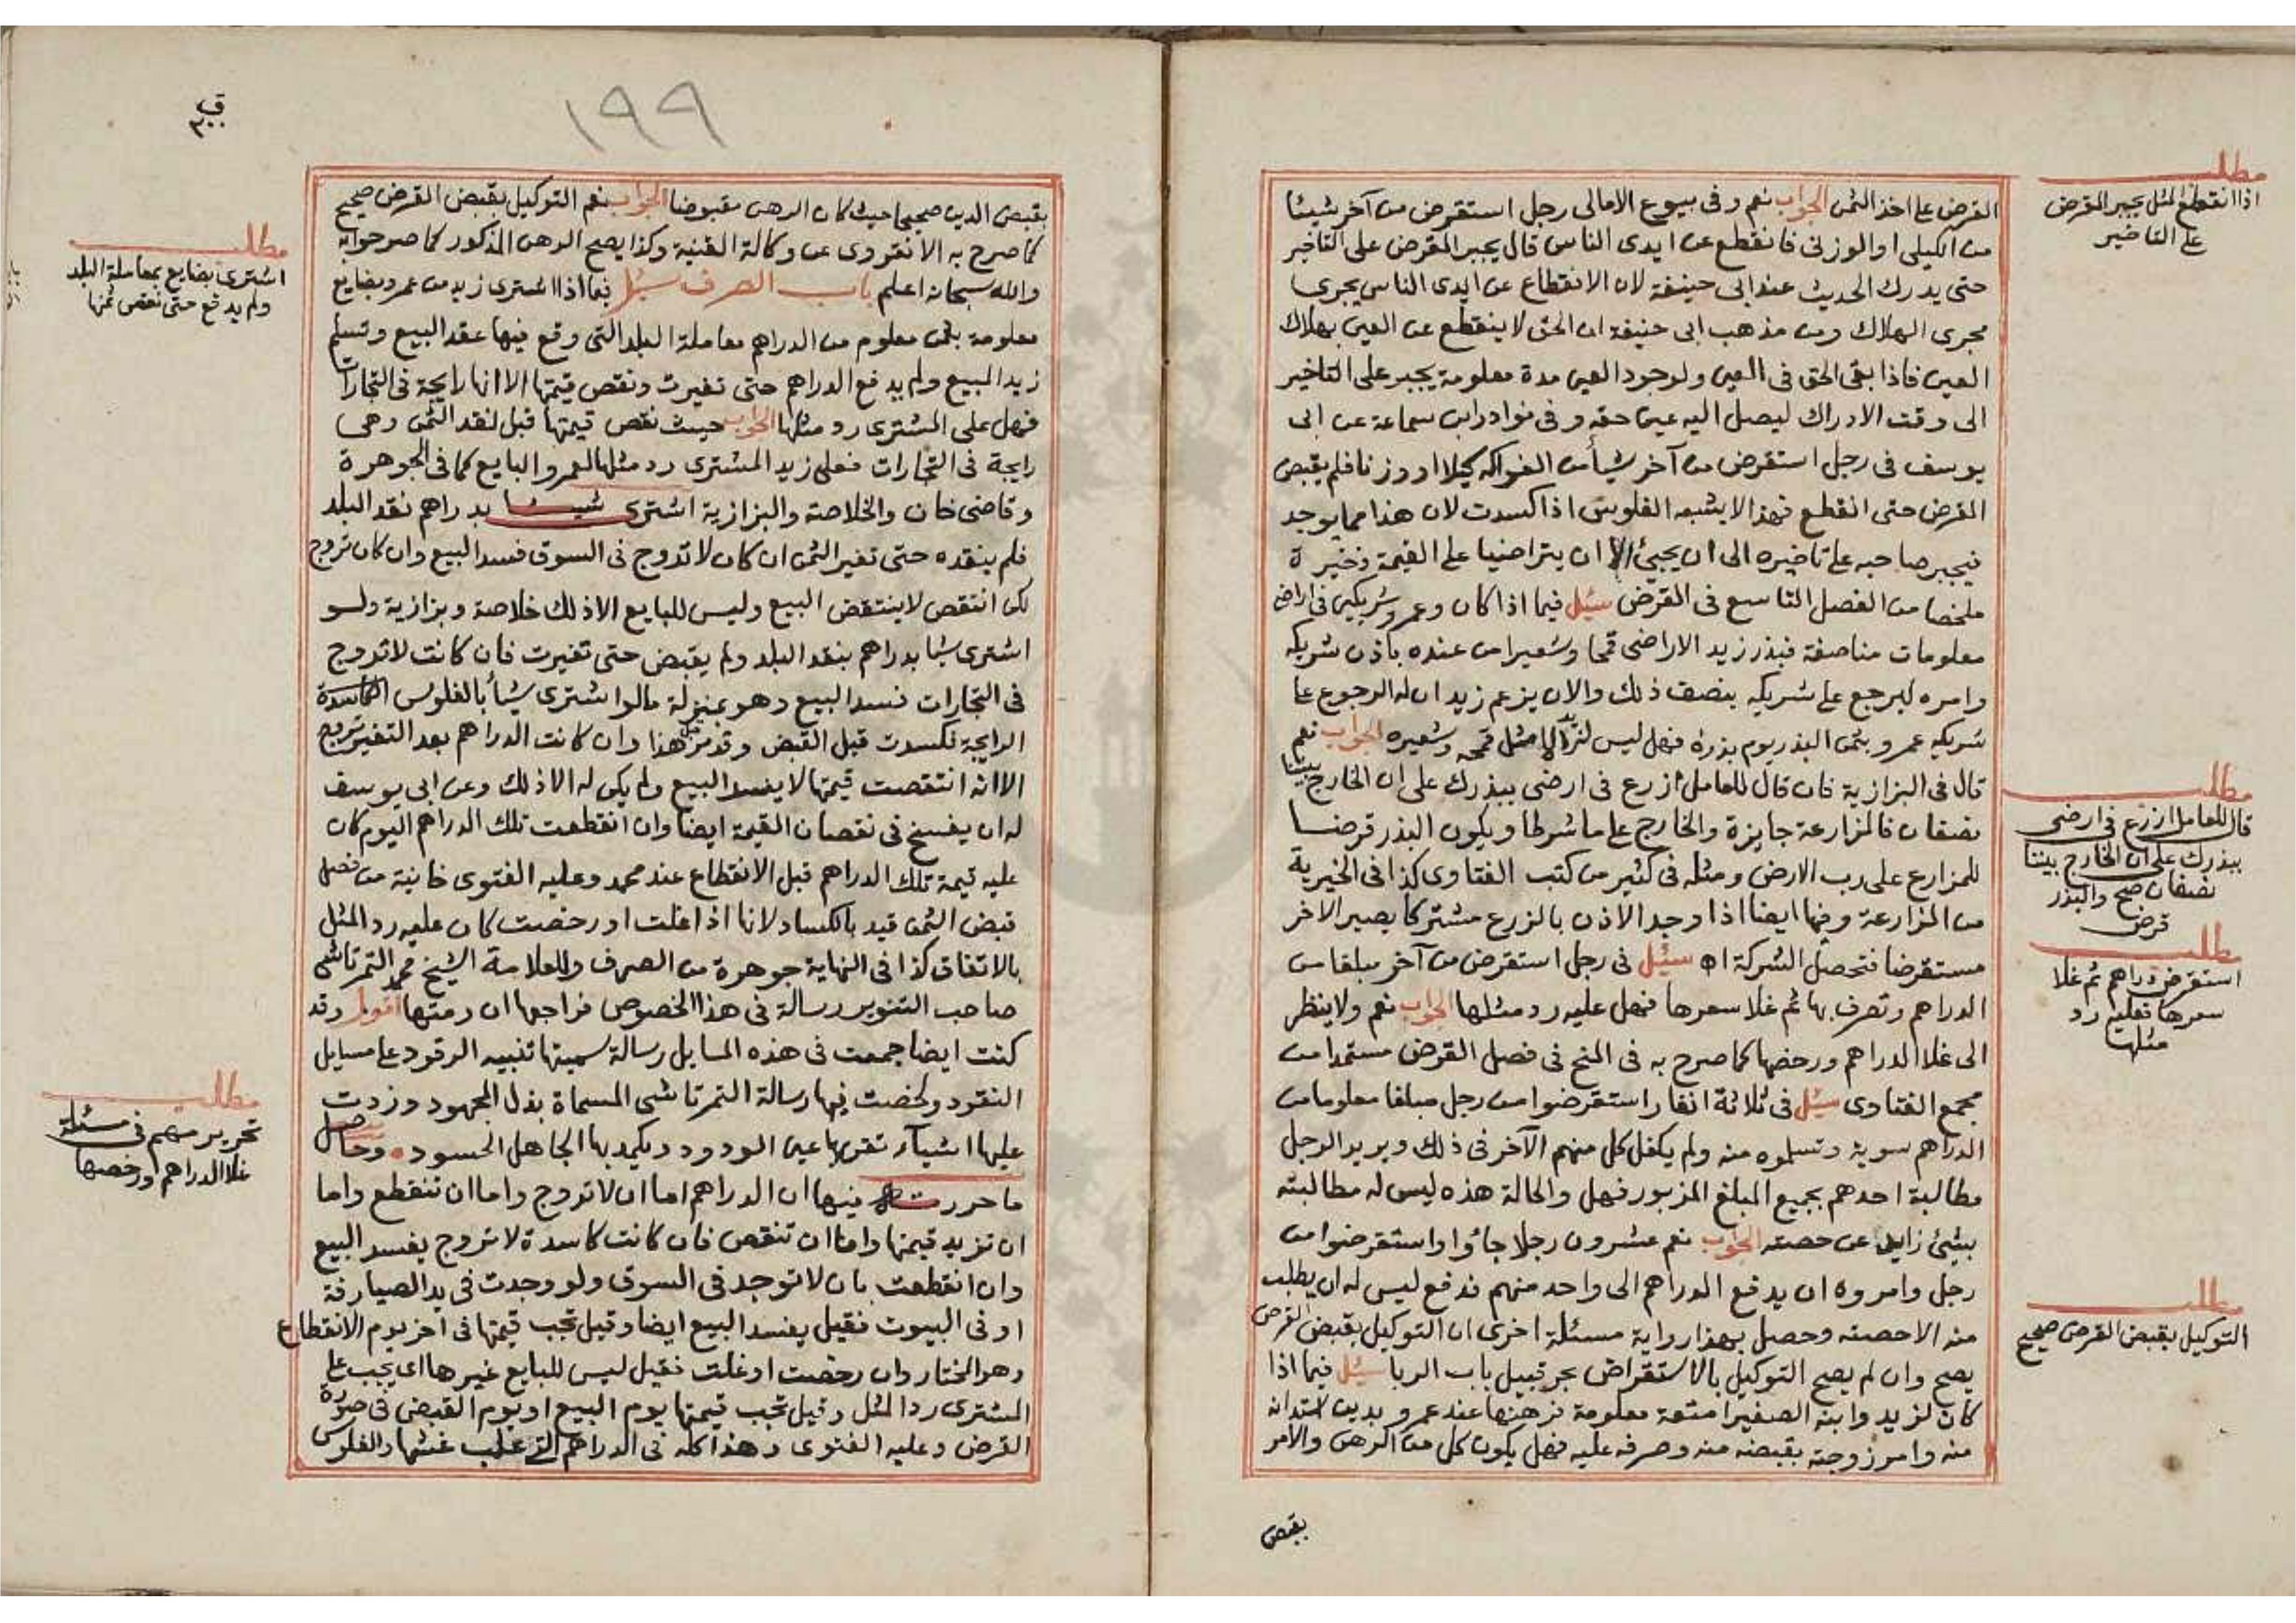 مطلب
اذا انقطع المثل يجبر المقرض
على التاخير
القرض على اخذ الثمن الجواب نعم وفى بيوع الامالى رجل استقرض من آخر شيئا
من الكيلى او الوزنى فانقطع عن ايدى الناس قال يجبر المقرض على التاخير
حتى يدرك الحديث عند ابى حنيفة لان الانقطاع عن ايدى الناس يجرى
مجرى الهلاك ومن مذهب ابى حنيفة ان الحق لا ينقطع عن العين بهلاك
العين فاذا بقى الحق فى العين ولوجود العين مدة معلومة يجبر على التاخير
الى وقت الادراك ليصل اليه عين حقه وفى نوادر ابن سماعة عن ابى
يوسف فى رجل استقرض من آخر شيأ من الفواكه كيلا او وزنا فلم يقبض
المقرض حتى انقطع فهذا لا يشبه الفلوس اذا كسدت لان هذا مما يوجد
فيجبر صاحبه على تاخيره الى ان يجيئ الا ان يتراضيا على القيمة ذخيرة
ملخصا من الفصل التاسع فى القرض سئل فيما اذا كان وعمرو شريكين فى اراضى
معلومات مناصفة فبذر زيد الاراضى قمحا وشعيرا من عنده باذن شريكه
وامره ليرجع على شريكه بنصف ذلك والان يزعم زيد ان له الرجوع على
شريكه عمرو بثمن البذر يوم بذره فهل ليس لزيد الا مثل قمحه وشعيره الجواب نعم
قال فى البزازية فان قال للعامل ازرع فى ارضى ببذرك على ان الخارج بيننا
نصفان فالمزارعة جايزة والخارج على ما شرطا ويكون البذر قرضا
للمزارع على رب الارض ومثله فى كثير من كتب الفتاوى كذا فى الخيرية
من المزارعة وفيها ايضا اذا وجد الاذن بالزرع مشتركا يصير الاخر
مستقرضا فتحصل الشركة اه سئل فى رجل استقرض من آخر مبلغا من
الدراهم وتصرف بها ثم غلا سعرها فهل عليه رد مثلها الجواب نعم ولا ينظر
الى غلا الدراهم ورخصها كما صرح به فى المنح فى فصل القرض مستمدا من
مجمع الفتاوى سئل فى ثلاثة انفار استقرضوا من رجل مبلغا معلوما من
الدراهم سوية وتسلموه منه ولم يكفل كل منهم الآخر فى ذلك ويريد الرجل
مطالبة احدهم بجميع المبلغ المزبور فهل والحالة هذه ليس له مطالبته
بشئ زايد عن حصته الجواب نعم عشرون رجلا جاؤا واستقرضوا من
رجل وامروه ان يدفع الدراهم الى واحد منهم فدفع ليس له ان يطلب
منه الا حصته وحصل بهذا رواية مسئلة اخرى ان التوكيل بقبض القرض
يصح وان لم يصح التوكيل بالاستقراض بحر قبيل باب الربا سئل فيما اذا
كان لزيد وابنه الصغير امتعة معلومة فرهنها عند عمرو بدين استدانه
منه وامر زوجته بقبضه منه وصرفه عليه فهل يكون كل من الرهن والامر
بقبض
مطلب
قال للعامل ازرع فى ارضى
ببذرك على ان الخارج بيننا
نصفان صح والبذر
قرض
مطلب
استقرض دراهم ثم غلا
سعرها فعليه رد
مثلها
مطلب
التوكيل بقبض القرض صحيح
١٩٩
بقبض الدين صحيحا حيث كان الرهن مقبوضا الجواب نعم التوكيل بقبض القرض صحيح
كما صرح به الانقروى عن وكالة القنية وكذا يصح الرهن المذكور كما صرحوا به
والله سبحانه اعلم باب الصرف سئل فيما اذا اشترى زيد من عمرو بضايع
معلومة بثمن معلوم من الدراهم معاملة البلد التى وقع فيها عقد البيع وتسلم
زيد المبيع ولم يدفع الدراهم حتى تغيرت ونقص قيمتها الا انها رايجة فى التجارات
فهل على المشترى رد مثلها الجواب حيث نقص قيمتها قبل نقد الثمن وهى
رايجة فى التجارات فعلى زيد المشترى رد مثلها لعمرو البايع كما فى الجوهرة
وقاضى خان والخلاصة والبزازية اشترى شيئا بدراهم نقد البلد
فلم ينقده حتى تغير الثمن ان كان لا تروج فى السوق فسد البيع وان كان تروج
لكن انتقص لا ينتقض البيع وليس للبايع الا ذلك خلاصة وبزازية ولو
اشترى شيا بدراهم بنقد البلد ولم يقبض حتى تغيرت فان كانت لا تروج
فى التجارات فسد البيع وهو بمنزلة ما لو اشترى شيأ بالفلوس الكاسدة
الرايجة فكسدت قبل القبض وقد مر هذا وان كانت الدراهم بعد التغير تروج
الا انه انتقصت قيمتها لا يفسد البيع ولم يكن له الا ذلك وعن ابى يوسف
له ان يفسخ فى نقصان القيمة ايضا وان انقطعت تلك الدراهم اليوم كان
عليه قيمة تلك الدراهم قبل الانقطاع عند محمد وعليه الفتوى خانية من فصل
قبض الثمن قيد بالكساد لانها اذا غلت او رخصت كان عليه رد المثل
بالاتفاق كذا فى النهاية جوهرة من الصرف وللعلامة الشيخ محمد التمرتاشى
صاحب التنوير رسالة فى هذا الخصوص فراجعها ان رمتها اقول وقد
كنت ايضا جمعت فى هذه المسايل رسالة سميتها تنبيه الرقود على مسايل
النقود ولخصت فيها رسالة التمرتاشى المسماة بذل المجهود وزدت
عليها اشيآء تقر بها عين الودود ويكمد بها الجاهل الحسود وحاصل
ما حررت فيها ان الدراهم اما ان لا تروج واما ان تنقطع واما
ان تزيد قيمتها واما ان تنقص فان كانت كاسدة لا تروج يفسد البيع
وان انقطعت بان لا توجد فى السوق ولو وجدت فى يد الصيارفة
او فى البيوت فقيل يفسد البيع ايضا وقيل تجب قيمتها فى اخر يوم الانقطاع
وهو المختار وان رخصت او غلت فقيل ليس للبايع غيرها اى يجب على
المشترى رد المثل وقيل تجب قيمتها يوم البيع او يوم القبض فى صورة
القرض وعليه الفتوى وهذا كله فى الدراهم التى غلب غشها والفلوس
مطلب
اشترى بضايع بمعاملة البلد
ولم يدفع حتى نقص ثمنها
مطلب
تحرير مهم فى مسئلة
غلا الدراهم ورخصها